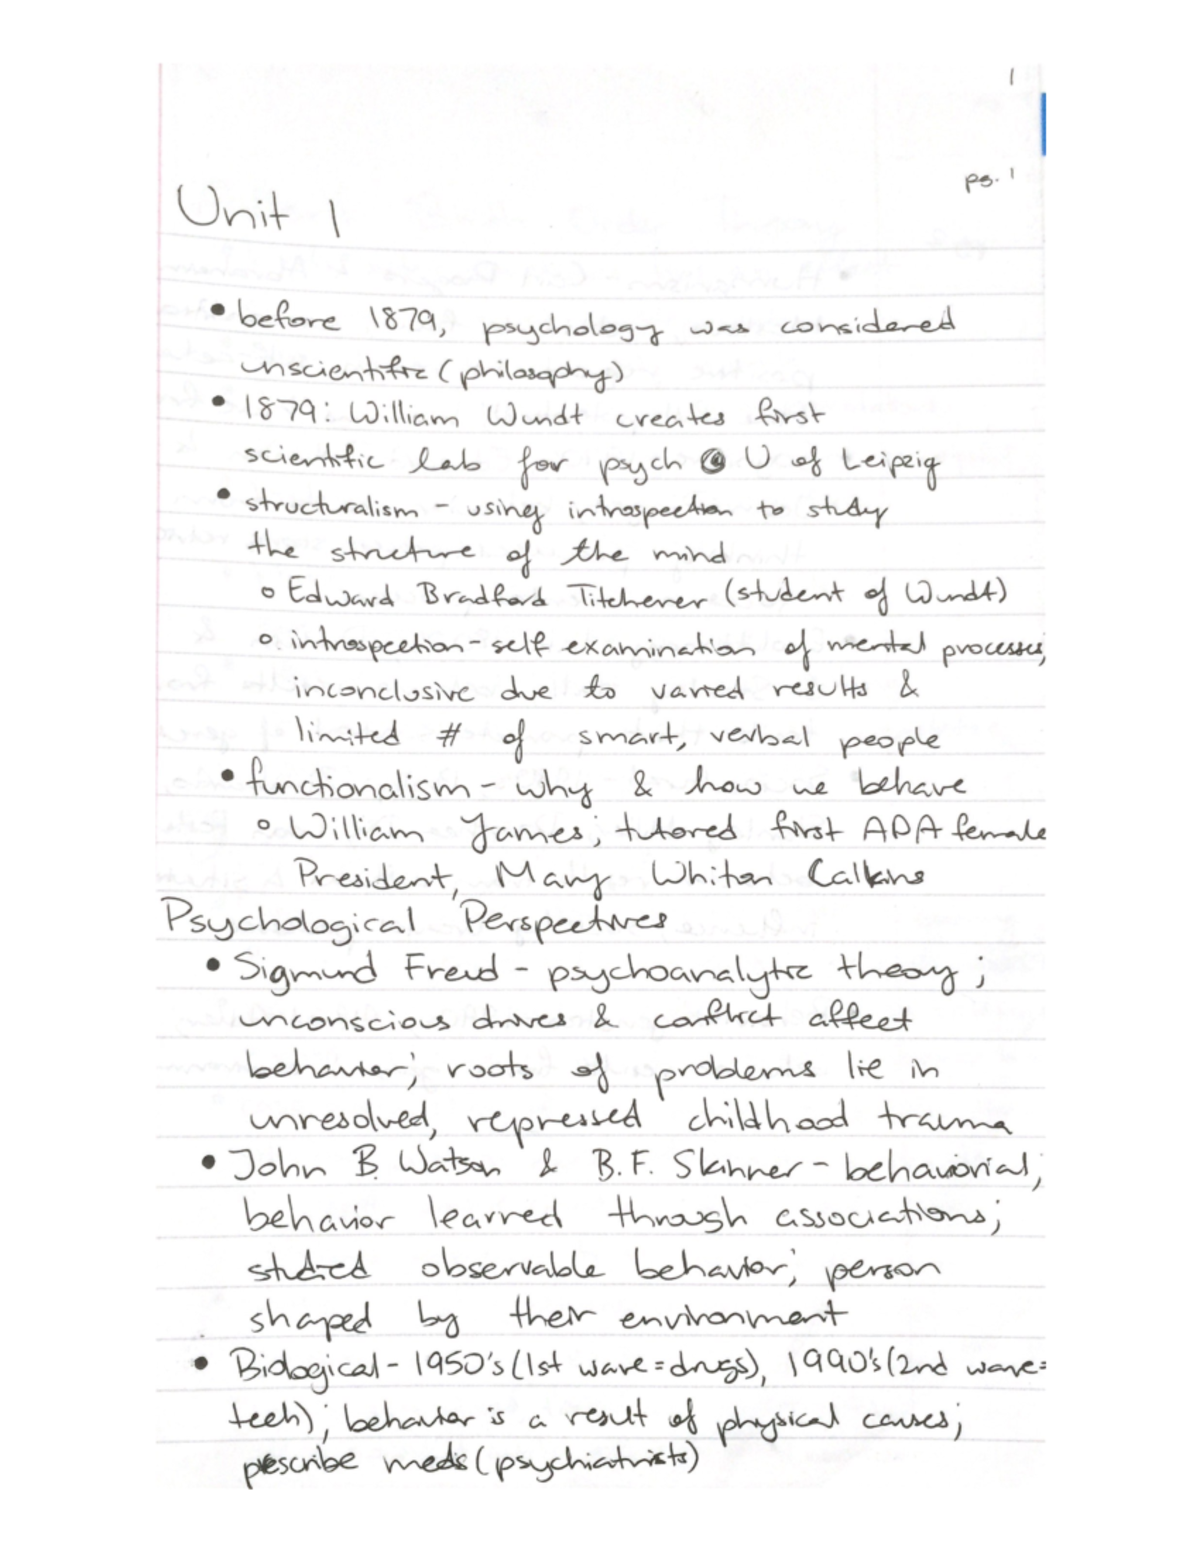 1
pg. 1
Unit 1
• before 1879, psychology was considered
unscientific (philosophy)
• 1879: William Wundt creates first
scientific lab for psych @ U of Leipzig
• structuralism - using introspection to study
the structure of the mind
o Edward Bradford Titchener (student of Wundt)
o introspection - self examination of mental processes;
inconclusive due to varied results &
limited # of smart, verbal people
• functionalism - why & how we behave
o William James; tutored first APA female
President, Mary Whiton Calkins
Psychological Perspectives
• Sigmund Freud - psychoanalytic theory;
unconscious drives & conflict affect
behavior; roots of problems lie in
unresolved, repressed childhood trauma
• John B. Watson & B.F. Skinner - behaviorial;
behavior learned through associations;
studied observable behavior; person
shaped by their environment
• Biological - 1950's (1st wave = drugs), 1990's (2nd wave =
tech); behavior is a result of physical causes;
prescribe meds (psychiatrists)